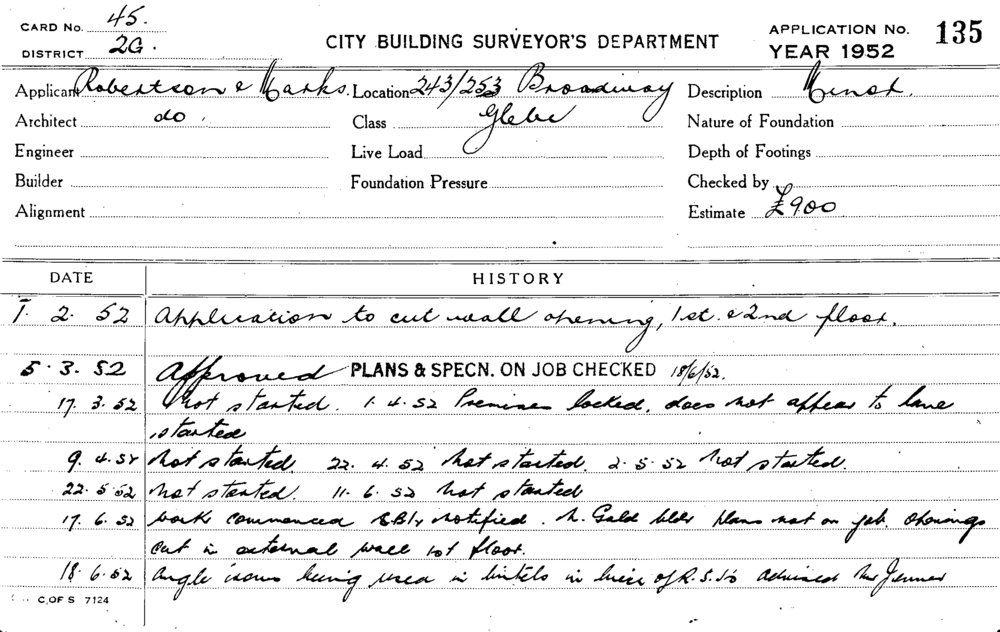 CARD No. 45.
DISTRICT 2G.
CITY BUILDING SURVEYOR'S DEPARTMENT
APPLICATION No. 135
YEAR 1952
Applicant Robertson & Marks. Location 243/253 Broadway Description Minor.
Architect do. Class Glebe Nature of Foundation
Engineer Live Load Depth of Footings
Builder Foundation Pressure Checked by
Alignment Estimate £900
DATE HISTORY
1. 2. 52 Application to cut wall opening, 1st. & 2nd floor.
5. 3. 52 Approved PLANS & SPECN. ON JOB CHECKED 18/6/52.
17. 3. 52 Not started. 1. 4. 52 Premises locked, does not appear to have
started
9. 4. 52 Not started 22. 4. 52 Not started. 2. 5. 52 Not started.
22. 5. 52 Not started. 11. 6. 52 Not started
17. 6. 52 Work commenced notified. Gold bldr plans not on job. Openings
cut in external wall 1st floor.
18. 6. 52 Angle irons being used in lintels in lieu of R.S.J's advised Mr Jenner
C.OF S 7124